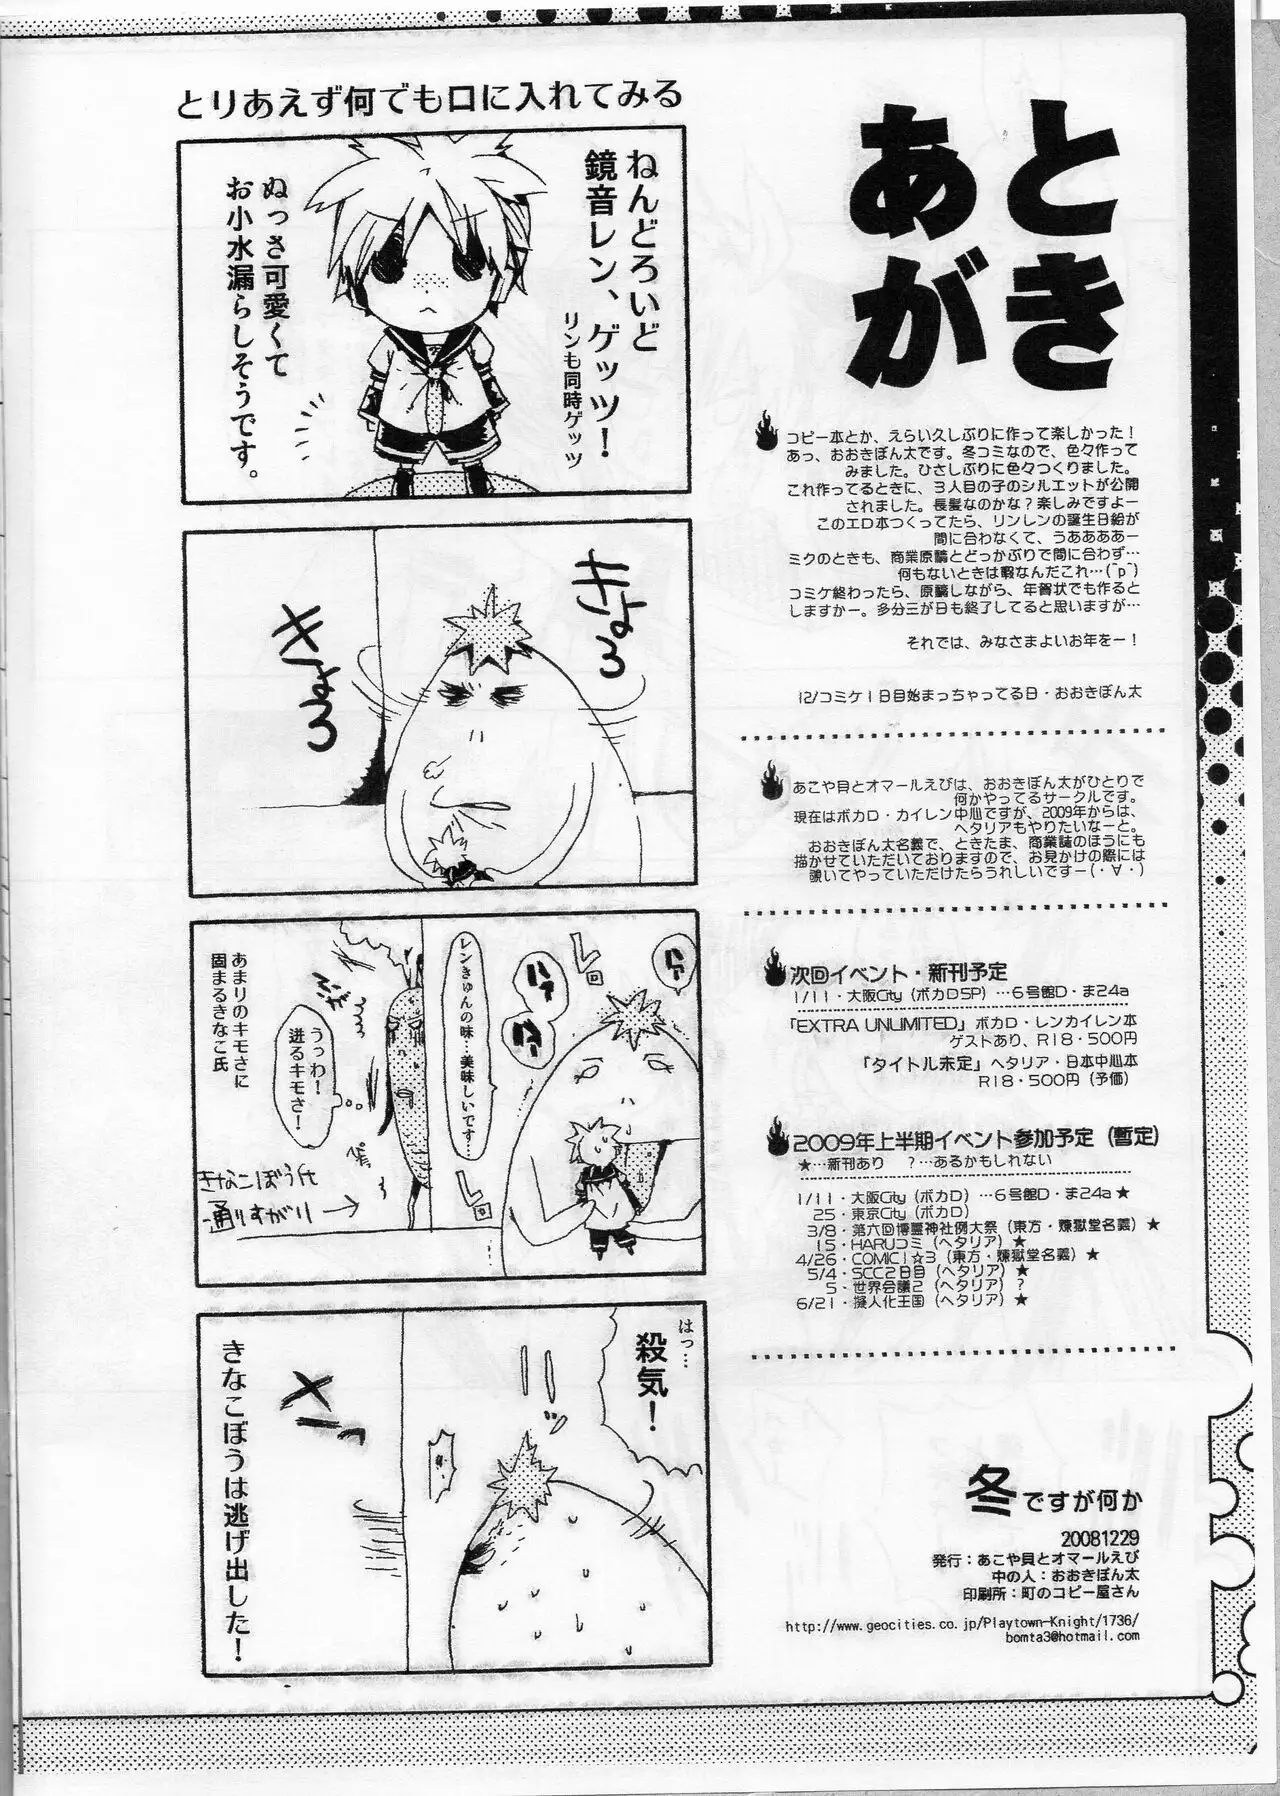 あとがき
コピー本とか、えらい久しぶりに作って楽しかった！
あっ、おおきぼん太です。冬コミなので、色々作って
みました。ひさしぶりに色々つくりました。
これ作ってるときに、3人目の子のシルエットが公開
されました。長髪なのかな？楽しみですよー
このエロ本つくってたら、リンレンの誕生日絵が
間に合わなくて、うああああー
ミクのときも、商業原稿とどっかぶりで間に合わず…
何もないときは暇なんだこれ…(¯p¯)
コミケ終わったら、原稿しながら、年賀状でも作ると
しますかー。多分三が日も終了してると思いますが…
それでは、みなさまよいお年をー！
12/コミケ1日目始まっちゃってる日・おおきぼん太
あこや貝とオマールえびは、おおきぼん太がひとりで
何かやってるサークルです。
現在はボカロ・カイレン中心ですが、2009年からは、
ヘタリアもやりたいなーと。
おおきぼん太名義で、ときたま、商業誌のほうにも
描かせていただいておりますので、お見かけの際には
覗いてやっていただけたらうれしいですー(・∀・)
次回イベント・新刊予定
1/11・大阪City（ボカロSP）…6号館D・ま24a
「EXTRA UNLIMITED」ボカロ・レンカイレン本
ゲストあり、R18・500円
「タイトル未定」ヘタリア・日本中心本
R18・500円（予価）
2009年上半期イベント参加予定（暫定）
★…新刊あり　？…あるかもしれない
1/11・大阪City（ボカロ）…6号館D・ま24a★
25・東京City（ボカロ）
3/8・第六回博霊神社例大祭（東方・煉獄堂名義）★
15・HARUコミ（ヘタリア）★
4/26・COMIC1☆3（東方・煉獄堂名義）★
5/4・SCC2日目（ヘタリア）★
5・世界会議2（ヘタリア）？
6/21・擬人化王国（ヘタリア）★
冬ですが何か
20081229
発行：あこや貝とオマールえび
中の人：おおきぼん太
印刷所：町のコピー屋さん
http://www.geocities.co.jp/Playtown-Knight/1736/
bomta3@hotmail.com
とりあえず何でも口に入れてみる
ねんどろいど
鏡音レン、ゲッツ！
リンも同時ゲッツ
ぬっさ可愛くて
お小水漏らしそうです。
きょろ
きょろ
ハァ
レロ
ハァ
ハァ
レンきゅんの味…美味しいです…
レロ
うっわ！
迸るキモさ！
あまりのキモさに
固まるきなこ氏
きなこぼう氏
通りすがり
はっ…
殺気！
バッ
さーっ
きなこぼうは逃げ出した！